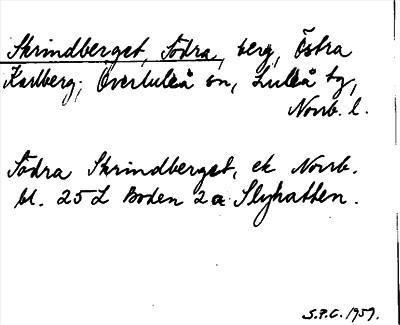 Skrindberget, Södra, berg, Östra
Karlberg, Överluleå sn, Luleå tg,
Norrb. l.
Södra Skrindberget, ek Norrb.
bl. 25 L Boden 2a Slyhatten.
S.P.C. 1959.